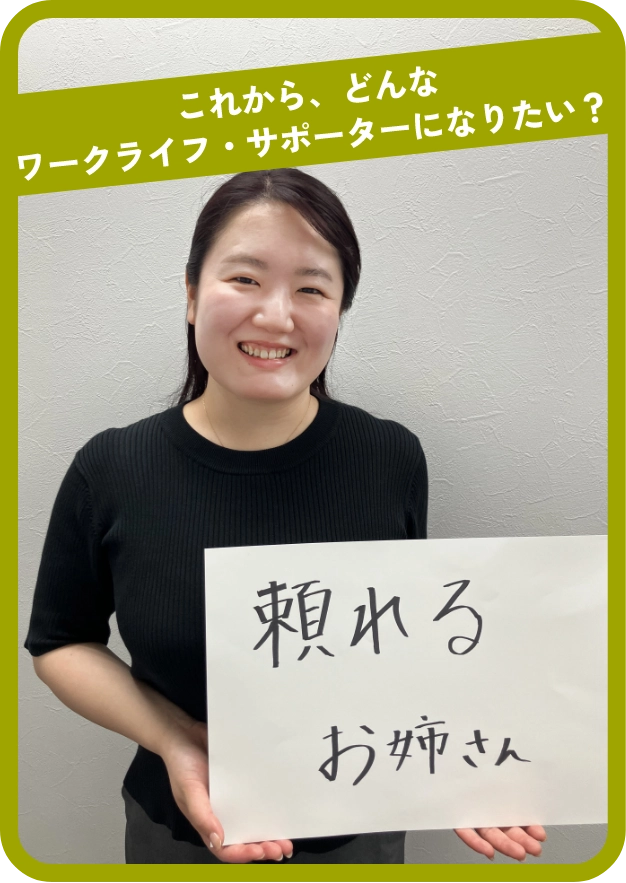 これから、どんな
ワークライフ・サポーターになりたい？
頼れる
お姉さん